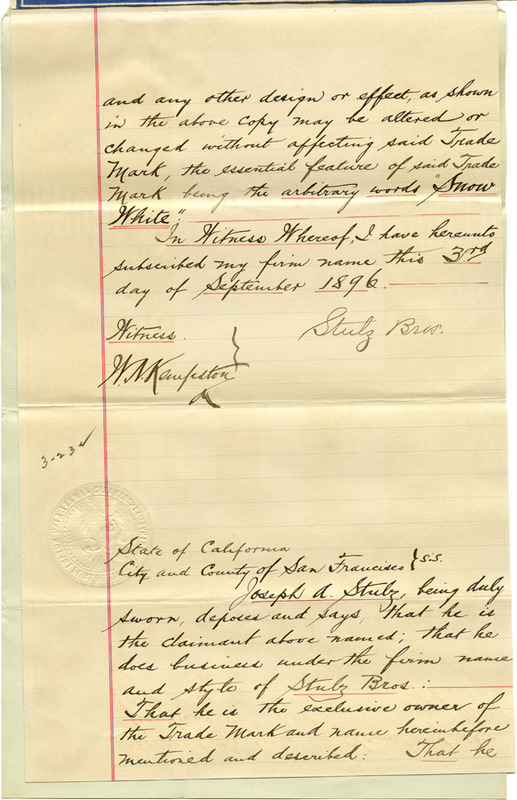 and any other design or effect, as shown
in the above copy may be altered or
changed without affecting said Trade
Mark, the essential feature of said Trade
Mark being the arbitrary words "Snow
White".
In Witness Whereof, I have hereunto
subscribed my firm name this 3rd
day of September 1896.
Stulz Bros.
Witness.
3-234
State of California
City and County of San Francisco } S.S.
Joseph A. Stulz, being duly
sworn, deposes and says, that he is
the claimant above named; that he
does business under the firm name
and style of Stulz Bros.:
That he is the exclusive owner of
the Trade Mark and name hereinbefore
mentioned and described: That he